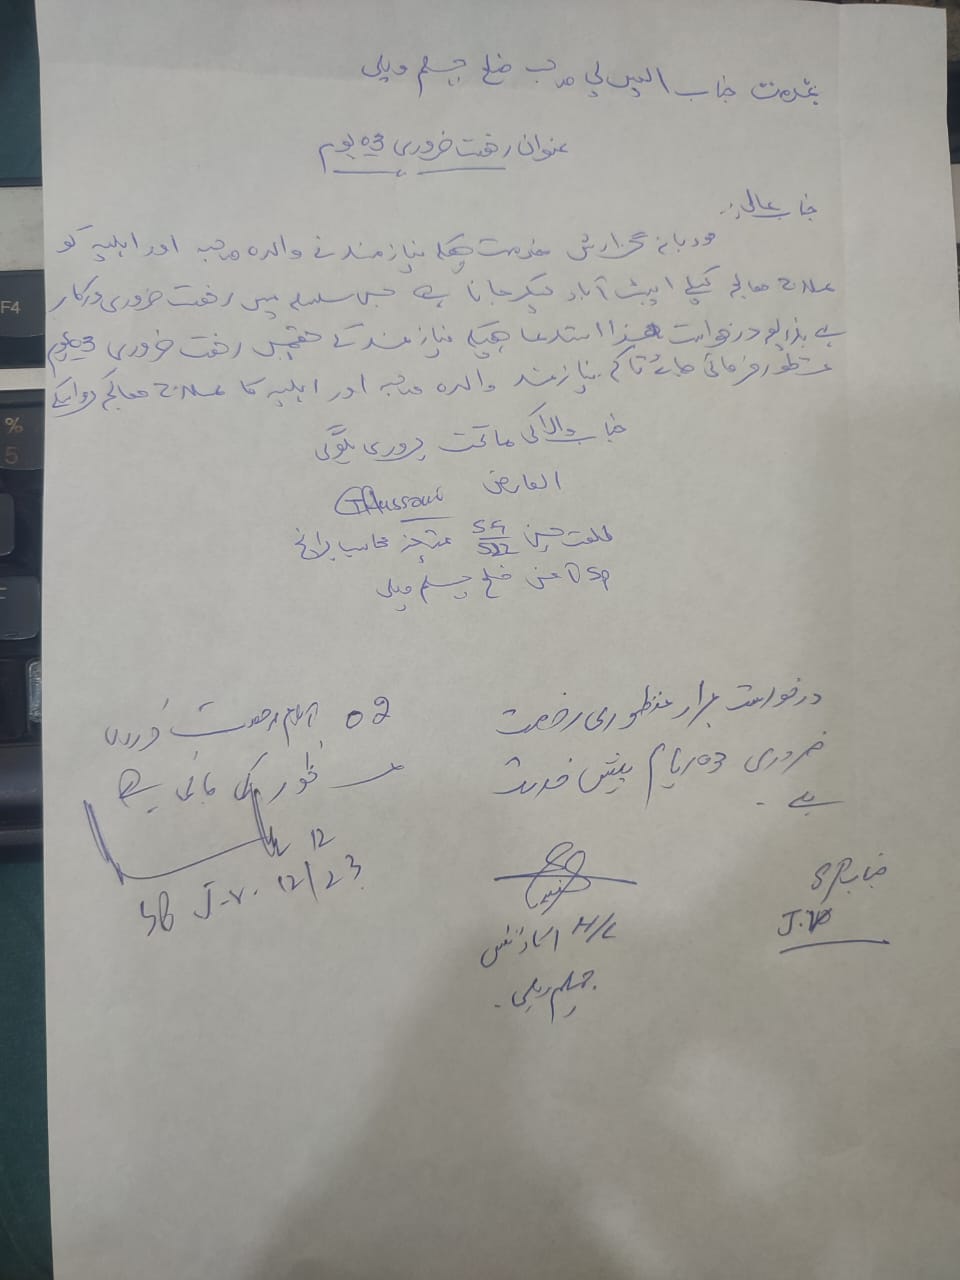 بخدمت جناب ایس پی صاحب ضلع جہلم ویلی
عنوان رخصت ضروری 03 یوم
جناب عالی:۔
مودبانہ گزارش خدمت ہیکہ نیازمند نے والدہ صاحبہ اور اہلیہ کو
علاج معالجہ کیلئے ایبٹ آباد لیکر جانا ہے جس سلسلہ میں رخصت ضروری درکار
ہے بذریعہ درخواست ھذا استدعا ہیکہ نیازمند کے حق میں رخصت ضروری 03 یوم
منظور فرمائی جائے تاکہ نیازمند والدہ صاحبہ اور اہلیہ کا علاج معالجہ کرواسکے
جناب والا کی ماتحت پروری ہوگی
العارض
Hussain
طلعت حسین متعینہ محاسب برانچ
DSP ضلع جہلم ویلی
درخواست بمراد منظوری رخصت
ضروری 03 ایام پیش خدمت
ہے۔
جناب SP
J.V
H/C
جہلم ویلی۔
02 ایام رخصت ضروری
منظور کی جاتی ہے
12
SP J.V. 12/23